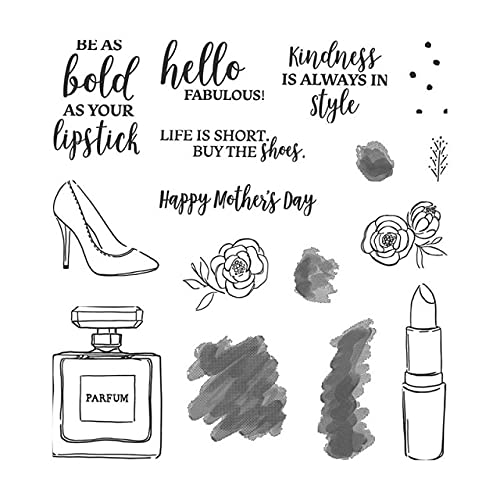 BE AS
bold
AS YOUR
lipstick
hello
FABULOUS!
Kindness
IS ALWAYS IN
style
LIFE IS SHORT.
BUY THE shoes.
Happy Mother's Day
PARFUM